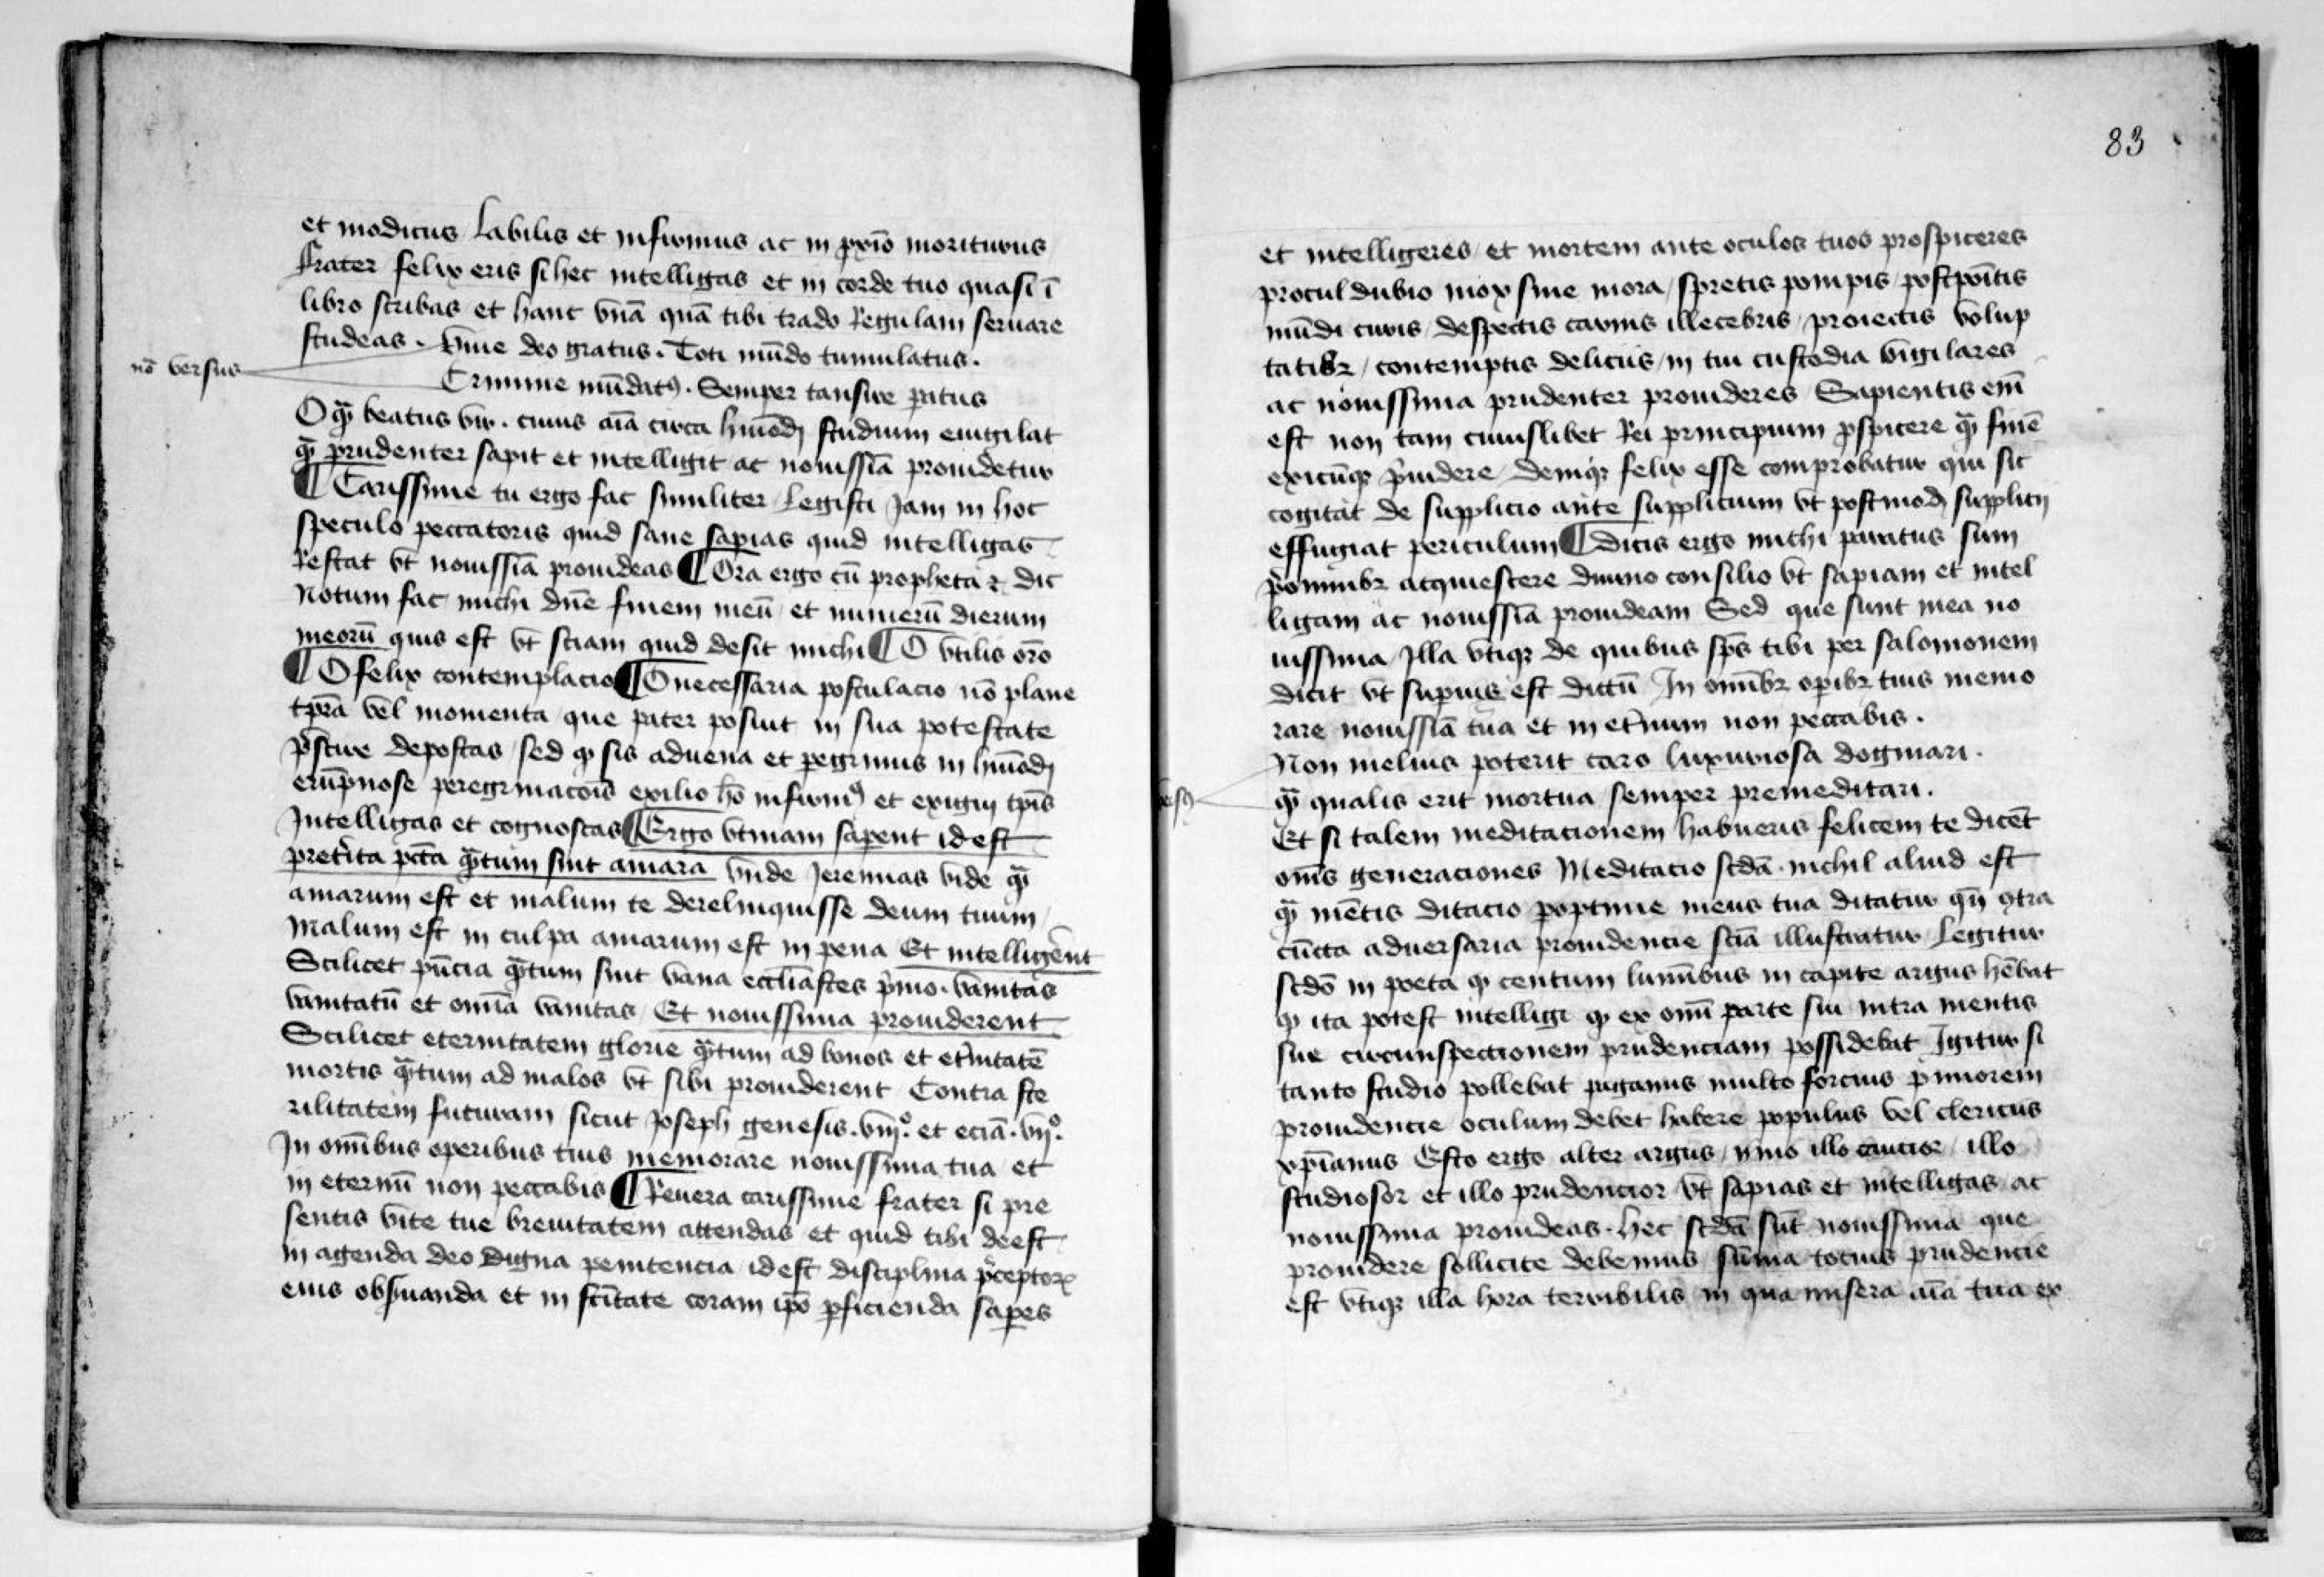 et modicus labilis et infirmus ac in pxīo moriturus
frater felix eris si hec intelligas et in corde tuo quasi ī
libro scribas et hanc vnā quā tibi trado Regulam seruare
studeas . viue deo gratus . Toti mūdo tumulatus .
nō versus
Crimine mūdatꝰ . Semper tansire ꝑatus
O qꝫ beatus vir . cuius aīa circa hmōdj studium euigilat
qꝫ prudenter sapit et intelligit ac nouissīa prouidetur
¶ Carissime tu ergo fac similiter legisti Jam in hoc
speculo peccatoris quid sane sapias quid intelligas
Restat vt nouissīa prouideas ¶ Ora ergo cū propheta ⁊ dic
Notum fac michi dn̄e finem meū et numerū dierum
meorū quis est vt sciam quid desit michi ¶ O vtilis orō
¶ O felix contemplacio ¶ O necessaria postulacio nō plane
tpr̄a vel momenta que pater posuit in sua potestate
p̄scire depostas sed ꝙ sis aduena et pegrinus in hmōdj
erūpnose peregrinacōis exilio hō infirmꝰ et exigui tpīs
Intelligas et cognoscas ¶ Ergo vtinam saperent id est
preterita pctā qꝫtum sint amara vnde Jeremias vide qꝫ
amarum est et malum te dereliquisse deum tuum
Malum est in culpa amarum est in pena Et intelligerent
Scilicet pn̄cia qꝫtum sint vana eccliastes p̄mo . vanitas
vanitatū et omīa vanitas Et nouissima prouiderent
Scilicet eternitatem glorie qꝫtum ad bonos et et̄nitatē
mortis qꝫtum ad malos vt sibi prouiderent Contra ste
rilitatem futuram sicut Joseph genesis . viijº . et eciā . vijº .
In omībus operibus tuis memorare nouissima tua et
in eternū non peccabis ¶ Reuera carissime frater si pre
sentis vite tue breuitatem attendas et quid tibi deest
in agenda deo digna penitencia id est disciplina p̄ceptorꝝ
eius obseruanda et in scītate coram ipō ꝑficienda saꝑes
83
et intelligeres et mortem ante oculos tuos prospiceres
procul dubio mox sine mora / spretis pompis / postpoītis
mūdi curis / despectis carnis illecebris / proiectis volup
tatibꝫ / contemptis deliciis / in tui custodia vigilares
ac nouissima prudenter prouideres Sapientis em̄
est non tam cuiuslibet Rei principium ꝓspicere qꝫ finē
exitūqꝫ p̄uidere / deniqꝫ felix esse comprobatur qui sic
cogitat de supplicio ante supplicium vt postmodū supplicij
effugiat periculum ¶ dicis ergo michi paratus sum
p̄ominibꝫ acquiescere diuino consilio vt sapiam et intel
ligam ac nouissīa prouideam Sed que sunt mea no
uissima / Illa vtiqꝫ de quibus sp̄s tibi per salomonem
dicit vt superius est dictū In omībꝫ opibꝫ tuis memo
rare nouissīa tua et in et̄num non peccabis .
Non melius poterit caro luxuriosa dogmari .
qꝫ qualis erit mortua semper premeditari .
Et si talem meditacionem habueris felicem te dicēt
om̄s generaciones Meditacio scdā . nichil aliud est
qꝫ mētis ditacio poptime mens tua ditatur qn̄ ꝯtra
cūcta aduersaria prouidencie sciā illustratur Legitur
scdō in poeta ꝙ centum luminibus in capite argus hēbat
ꝙ ita potest intelligi ꝙ ex omī parte sui intra mentis
sue circumspectionem prudenciam possidebat Igitur si
tanto studio pollebat paganus multo forcius
prouidencie oculum debet habere populus vel clericus
xpīanus Esto ergo alter argus / ymo illo caucior / illo
studiosior et illo prudencior vt sapias et intelligas / ac
nouissima prouideas . hec scdā sūt nouissima que
prouidere sollicite debemus sūma tocius prudencie
est vtiqꝫ illa hora terribilis in qua misera aīa tua ex